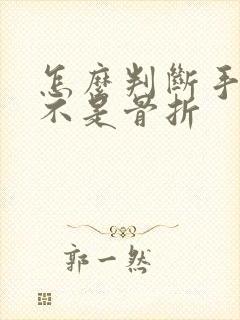 怎麼判斷手
不是骨折
郭一然